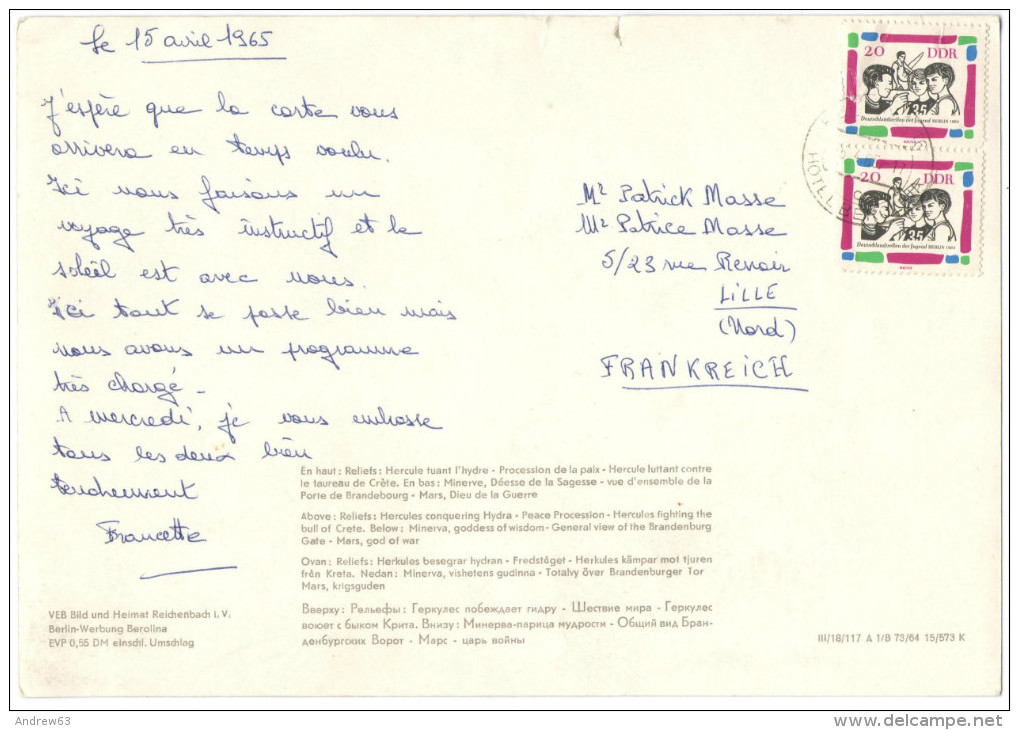 Le 15 avril 1965
J'espère que la carte vous
arrivera en temps voulu.
Ici nous faisons un
voyage très instructif et le
soleil est avec nous.
Ici tout se passe bien mais
nous avons un programme
très chargé -
A mercredi, je vous embrasse
tous les deux bien
tendrement
Francette
20 DDR
35
Deutschlandtreffen der Jugend BERLIN 1964
20 DDR
35
Deutschlandtreffen der Jugend BERLIN 1964
HOTEL
Mr Patrick Masse
Mr Patrice Masse
5/23 rue Renoir
LILLE
(Nord)
FRANKREICH
En haut: Reliefs: Hercule tuant l'hydre - Procession de la paix - Hercule luttant contre
le taureau de Crète. En bas: Minerve, Déesse de la Sagesse - vue d'ensemble de la
Porte de Brandebourg - Mars, Dieu de la Guerre
Above: Reliefs: Hercules conquering Hydra - Peace Procession - Hercules fighting the
bull of Crete. Below: Minerva, goddess of wisdom - General view of the Brandenburg
Gate - Mars, god of war
Ovan: Reliefs: Herkules besegrar hydran - Fredståget - Herkules kämpar mot tjuren
från Kreta. Nedan: Minerva, vishetens gudinna - Totalvy över Brandenburger Tor
Mars, krigsguden
Вверху: Рельефы: Геркулес побеждает гидру - Шествие мира - Геркулес
воюет с быком Крита. Внизу: Минерва-парица мудрости - Общий вид Бран-
денбургских Ворот - Марс - царь войны
VEB Bild und Heimat Reichenbach i. V.
Berlin-Werbung Berolina
EVP 0,55 DM einschl. Umschlag
III/18/117 A 1/B 73/64 15/573 K
Andrew63
delcampe.net